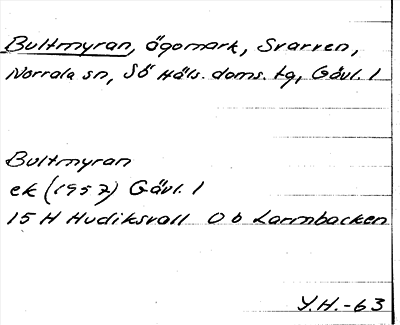 Bultmyran, ägomark, Svarven,
Norrala sn, Sö Häls. doms. tg, Gävl. l
Bultmyran
ek (1957) Gävl. l
15 H Hudiksvall 0 b Larmbacken
Y.H.-63